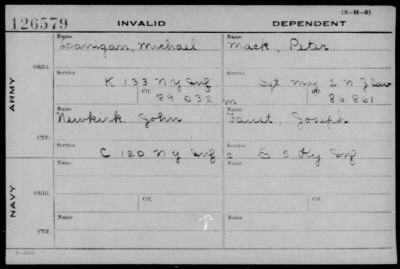 (3-H-5)
126579 INVALID DEPENDENT
Name Name
Lanigan, Michael Mack, Peter
ORIG. Service Service
K 133 N Y Inf Sgt Maj 2 N J Cav
Ctf. Ctf.
89 032 m 86 861
ARMY
Name Name
Newkirk, John Faust, Joseph
CTF. Service Service
C 120 N Y Inf E 5 Ky Inf
NAVY
Name Name
ORIG.
Ctf. Ctf.
Name Name
CTF.